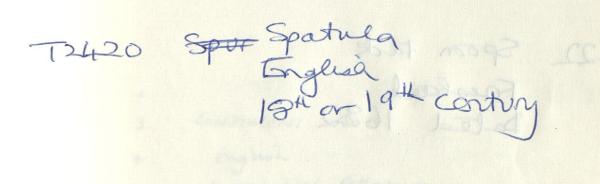 T2420 Spur Spatula
English
18th or 19th century